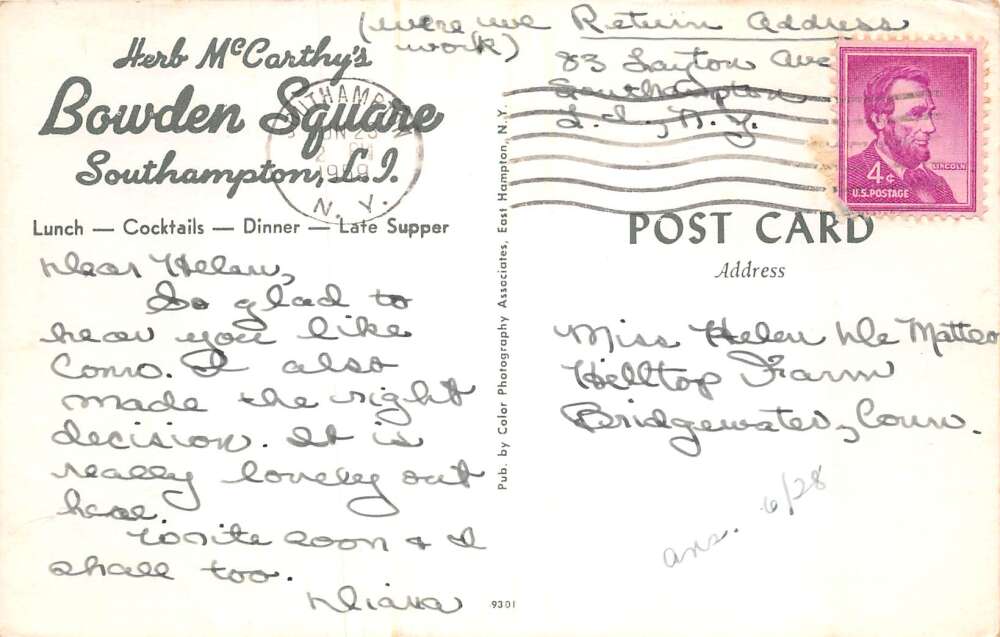 Herb McCarthy's
Bowden Square
Southampton, L.I.
Lunch — Cocktails — Dinner — Late Supper
(where we work)
Return Address
83 Layton Ave
Southampton
L.I., N.Y.
SOUTHAMPTON
JUN 25
2 PM
1959
N. Y.
LINCOLN
4¢
U.S. POSTAGE
POST CARD
Address
Dear Helen,
So glad to
hear you like
Conn. I also
made the right
decision. It is
really lovely out
here.
Write soon & I
shall too.
Diana
Pub. by Color Photography Associates, East Hampton, N.Y.
9301
Miss Helen De Matteo
Hilltop Farm
Bridgewater, Conn.
ans. 6/28